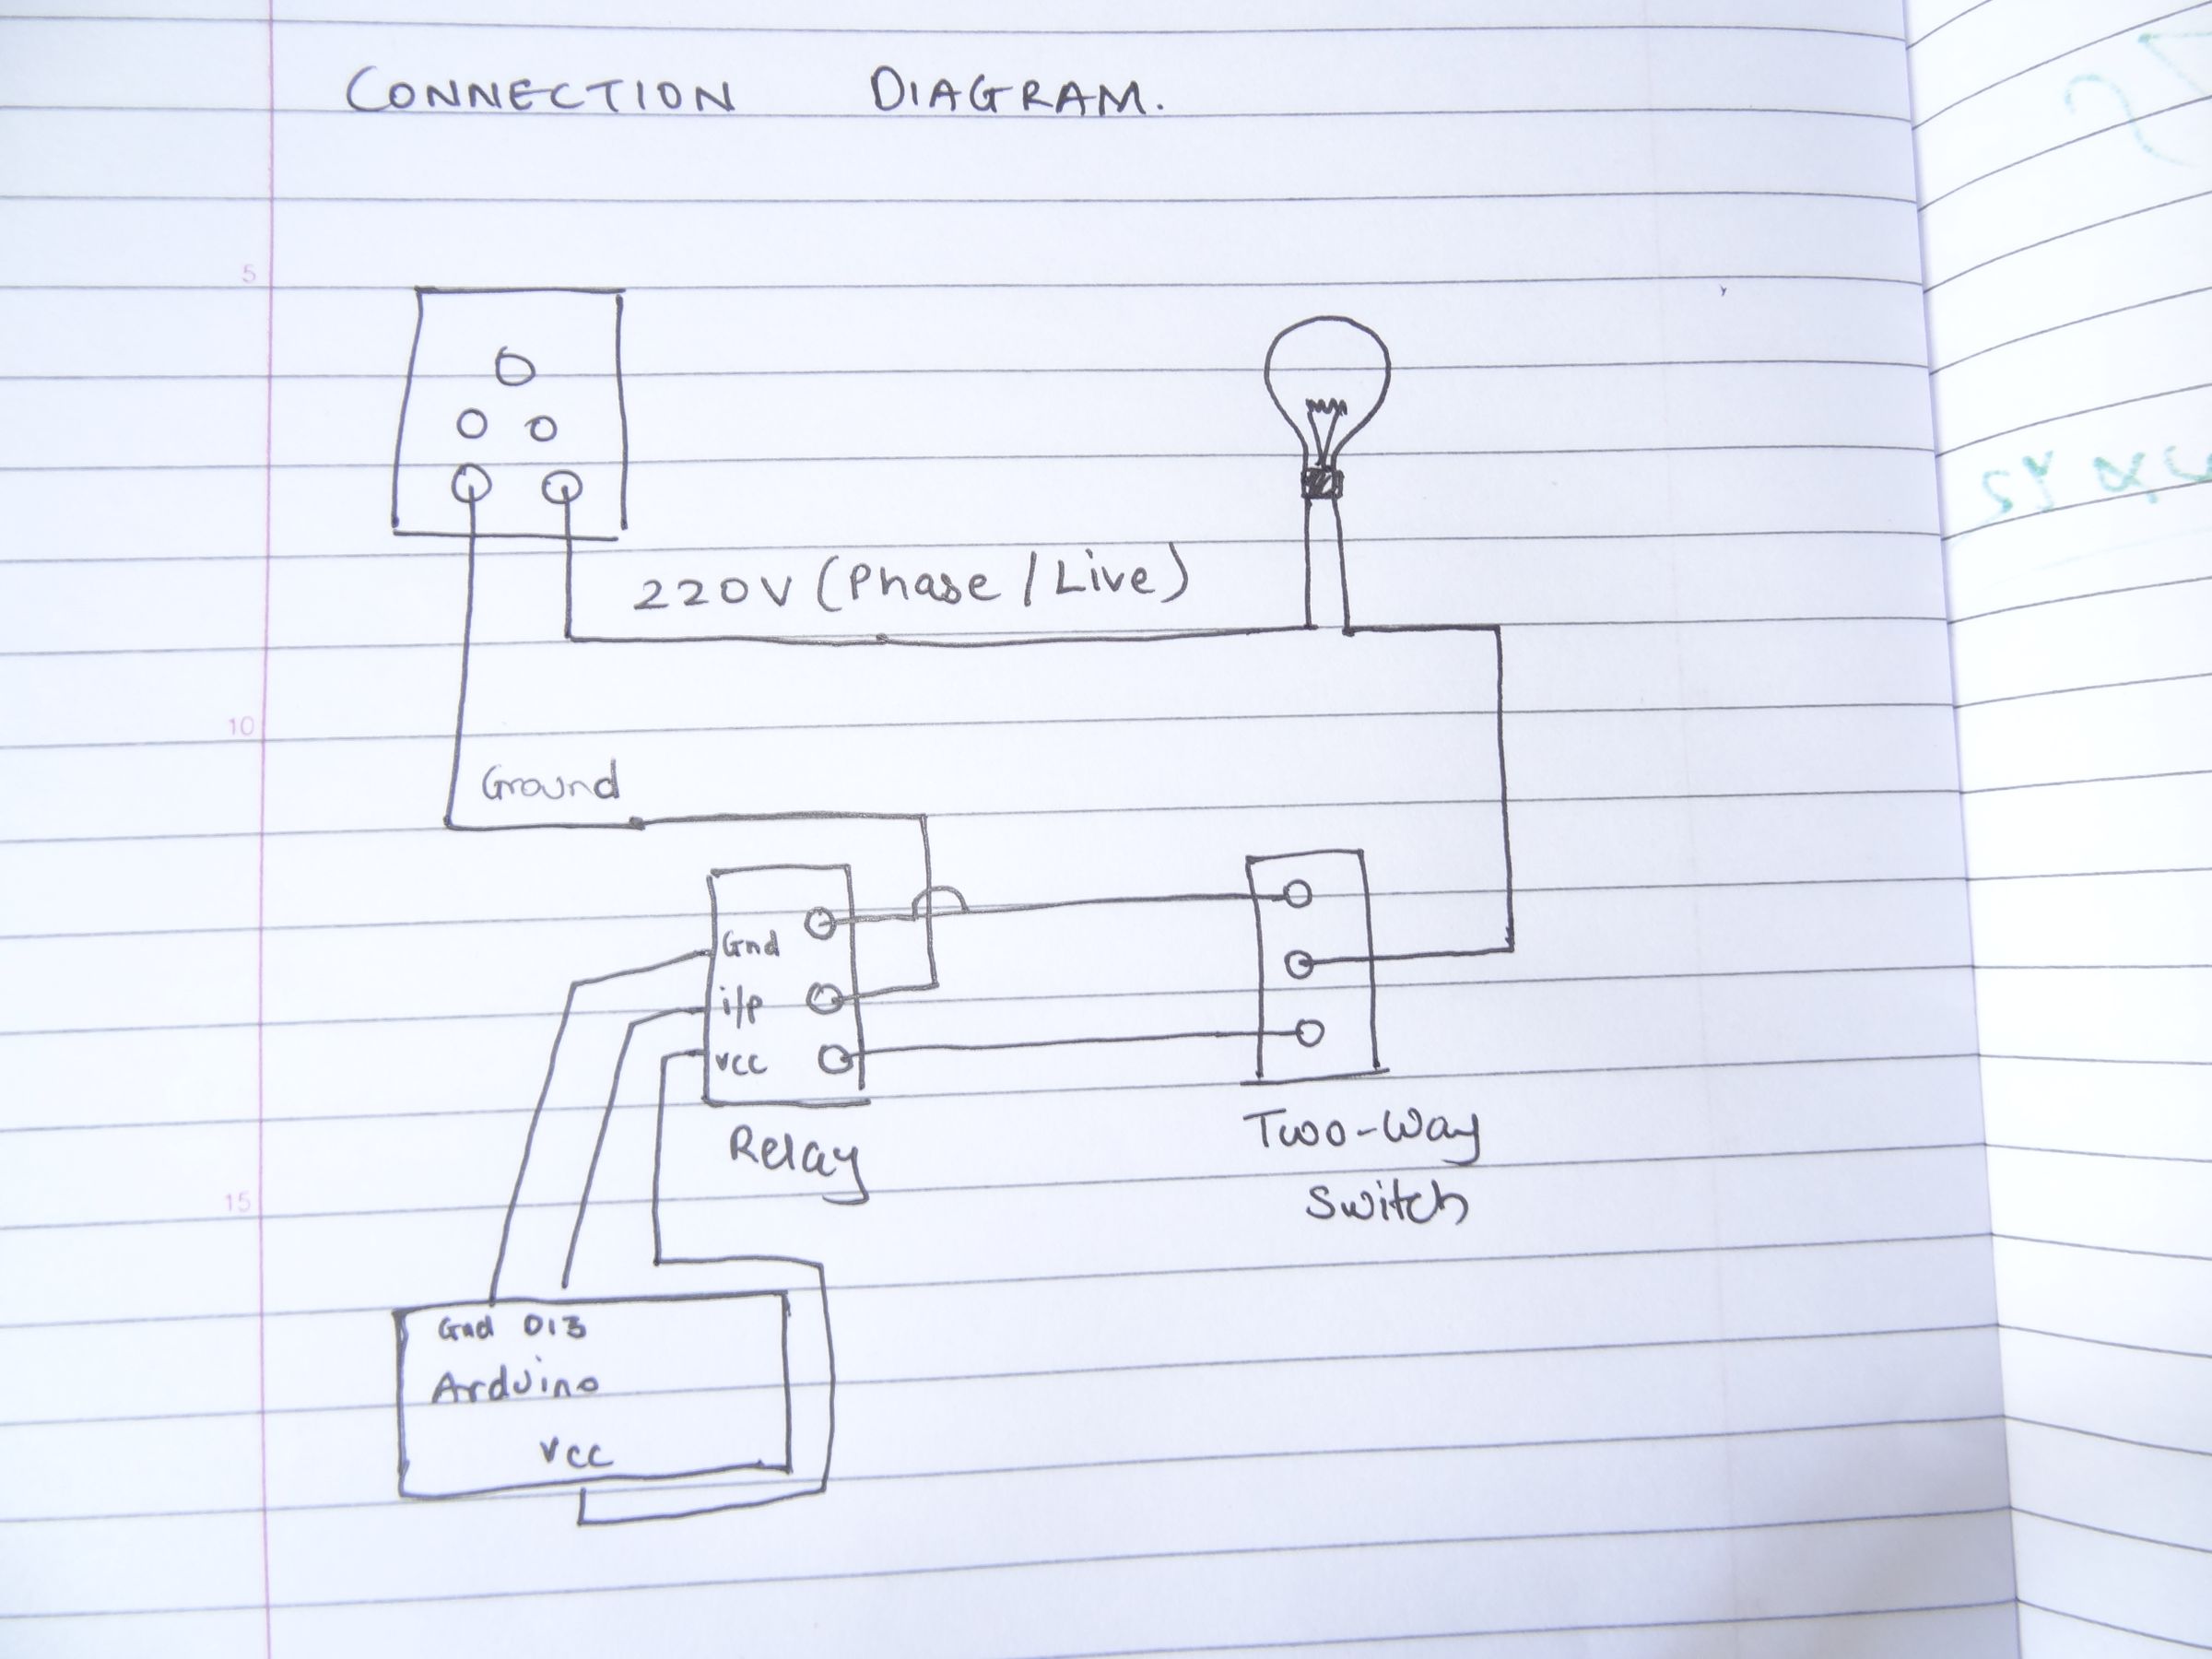 CONNECTION DIAGRAM.
5
220V (Phase / Live)
10
Ground
Gnd
i/p
vcc
Relay
Two-Way
Switch
15
Gnd D13
Arduino
Vcc